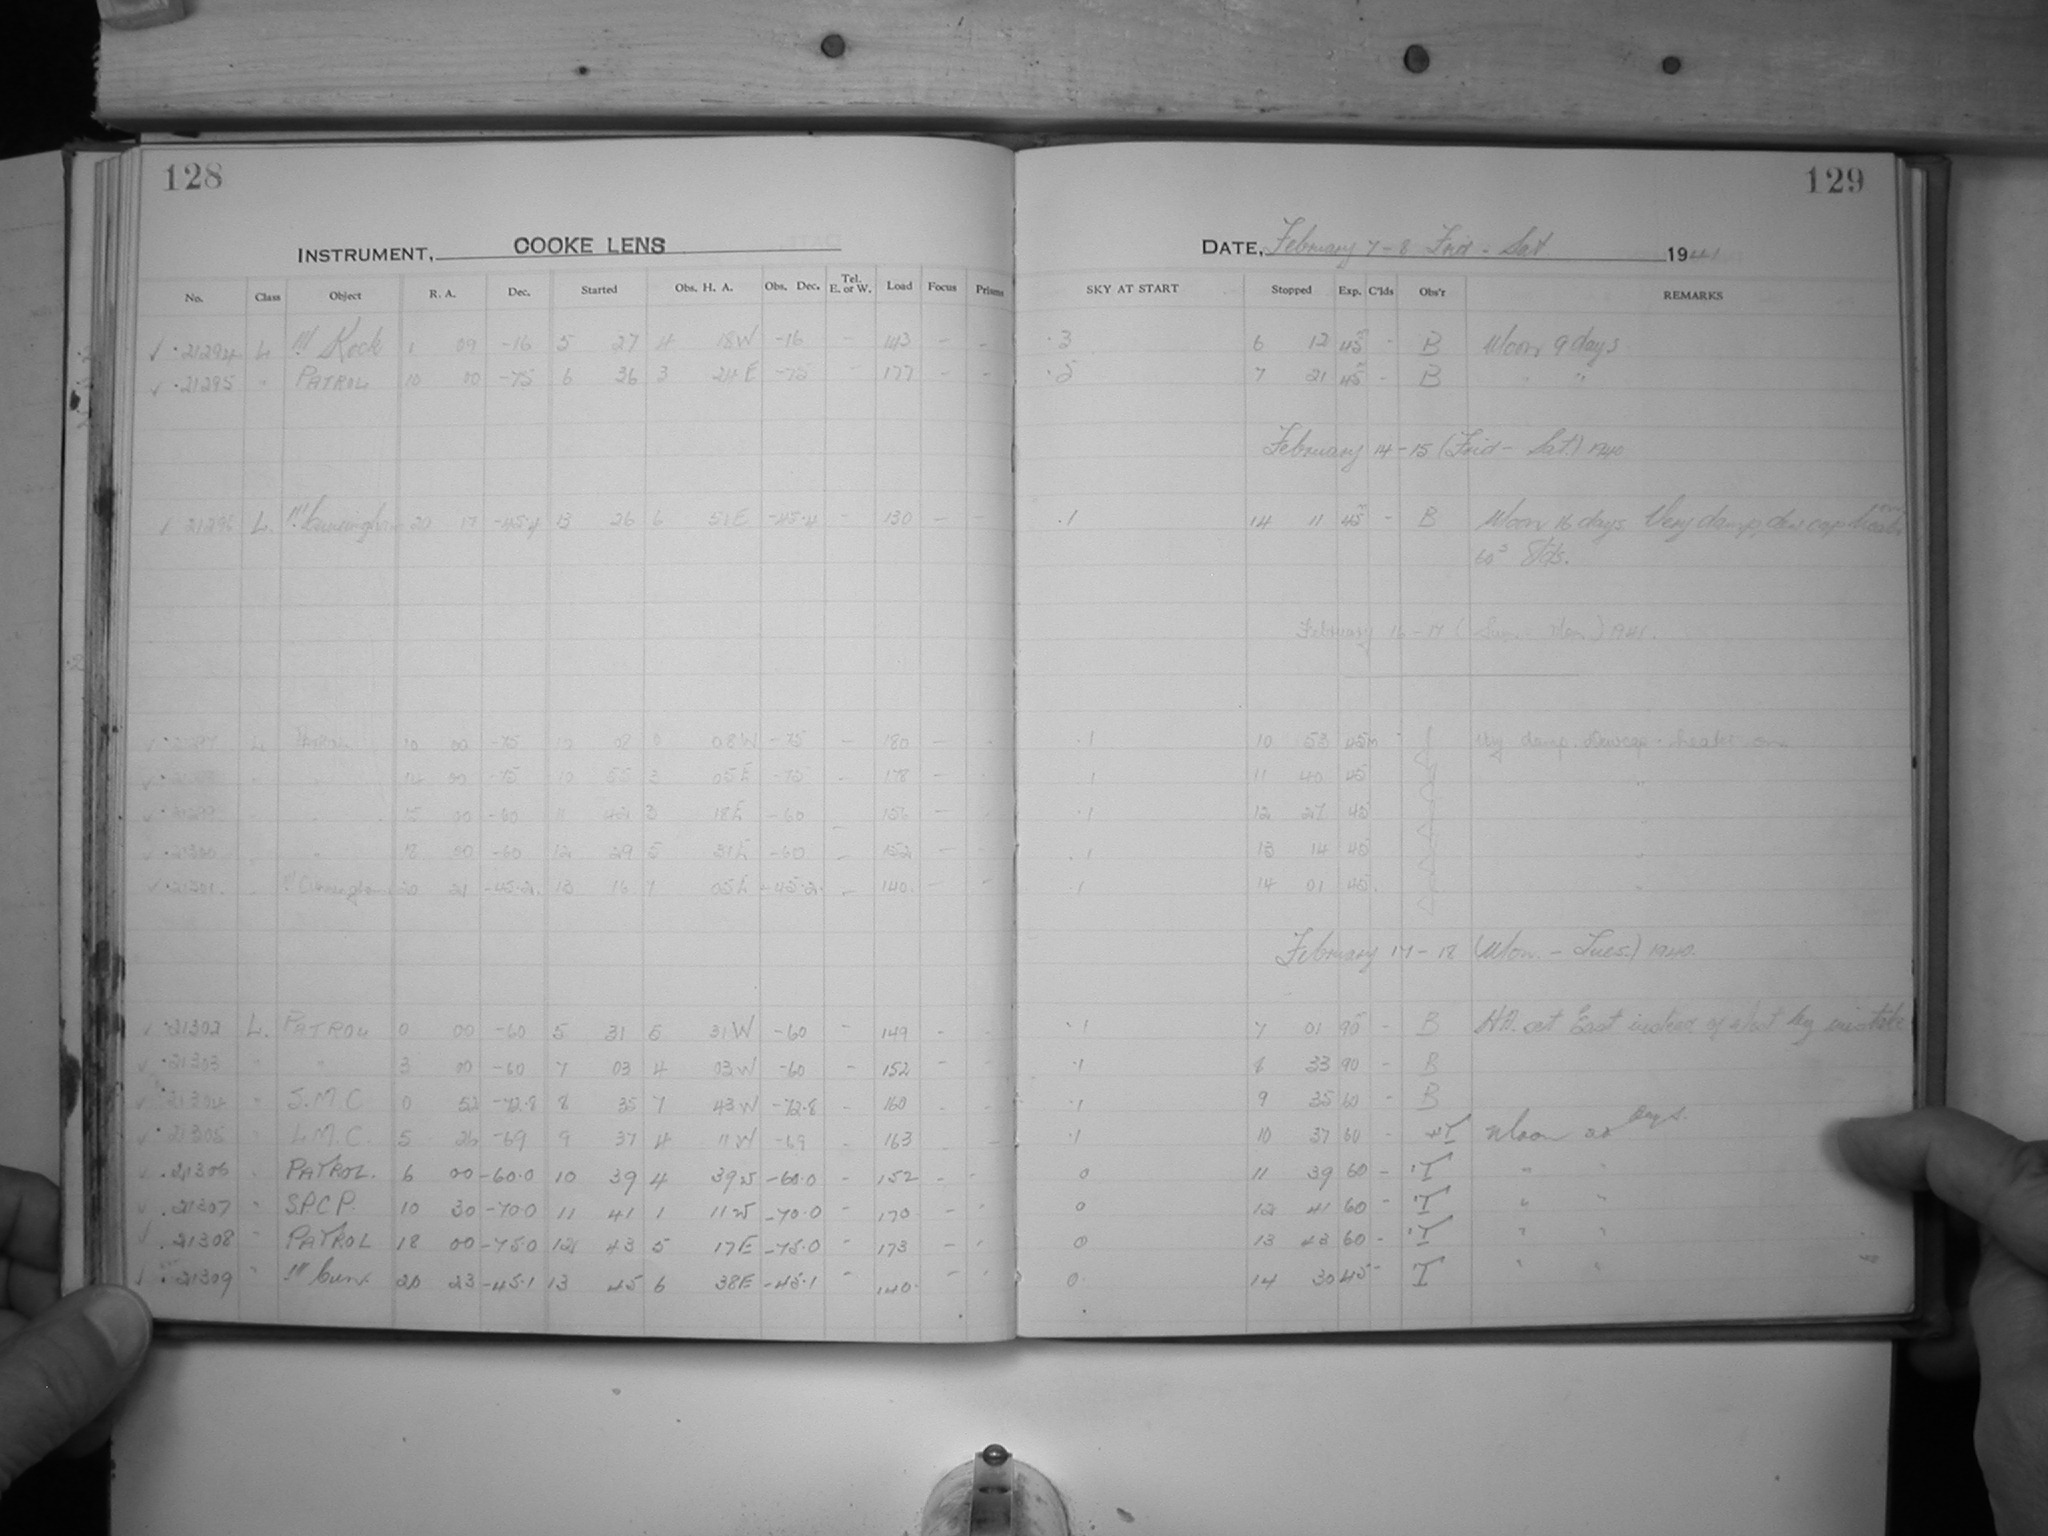 128
INSTRUMENT, COOKE LENS
No. Class Object R. A. Dec. Started Obs. H. A. Obs. Dec. Tel. E. or W. Load Focus Prisms
√ ·21294 L !!! Kock 1 09 -16 5 27 4 18W -16 - 143 - -
√ ·21295 " PATROL 10 00 -75 6 36 3 24E -75 - 177 - -
√ 21296 L. !!! Cunningham 20 17 -45.4 13 26 6 51E -45.4 - 130 - -
L PATROL 10 00 -75 10 08 0 08W -75 - 180 - -
" " 14 00 -75 10 55 3 05E -75 - 178 - -
" " 15 00 -60 11 42 3 18E -60 - 156 - -
√ ·21300 " " 18 00 -60 12 29 5 31E -60 - 152 - -
√ ·21301 " !!! Cunningham 20 21 -45.2 13 16 7 05E -45.2 - 140 - -
√ ·21302 L. PATROL 0 00 -60 5 31 5 31W -60 - 149 - -
√ ·21303 " " 3 00 -60 7 03 4 03W -60 - 152 - -
√ ·21304 " S.M.C 0 52 -72.8 8 35 7 43W -72.8 - 160 - -
√ ·21305 " L.M.C. 5 26 -69 9 37 4 11W -69 - 163 - -
√ ·21306 " PATROL. 6 00 -60.0 10 39 4 39W -60.0 - 152 - -
√ ·21307 " S.P.C.P. 10 30 -70.0 11 41 1 11W -70.0 - 170 - -
√ ·21308 " PATROL 18 00 -75.0 12 43 5 17E -75.0 - 173 - -
√ ·21309 " !!! Cunn 20 23 -45.1 13 45 6 38E -45.1 - 140 - -
129
DATE, February 7-8 Frid - Sat 1941
SKY AT START Stopped Exp. C'lds Obs'r REMARKS
·3 6 12 45 - B Moon 9 days
·5 7 21 45 - B " "
February 14-15 (Frid - Sat.) 1940
·1 14 11 45 - B Moon 16 days Very damp, dew cap heater on
60s Stds.
February 16-17 (Sun - Mon) 1941.
·1 10 53 45m Very damp. Dewcap heater on
·1 11 40 45 "
·1 12 27 45 "
·1 13 14 45 "
·1 14 01 45 "
February 17-18 (Mon. - Tues.) 1940.
·1 7 01 90 - B H.A. set East instead of West by mistake
·1 8 33 90 - B
·1 9 35 60 - B
·1 10 37 60 - T Moon 22 days.
0 11 39 60 - T " "
0 12 41 60 - T " "
0 13 43 60 - T " "
0 14 30 45 - T " "